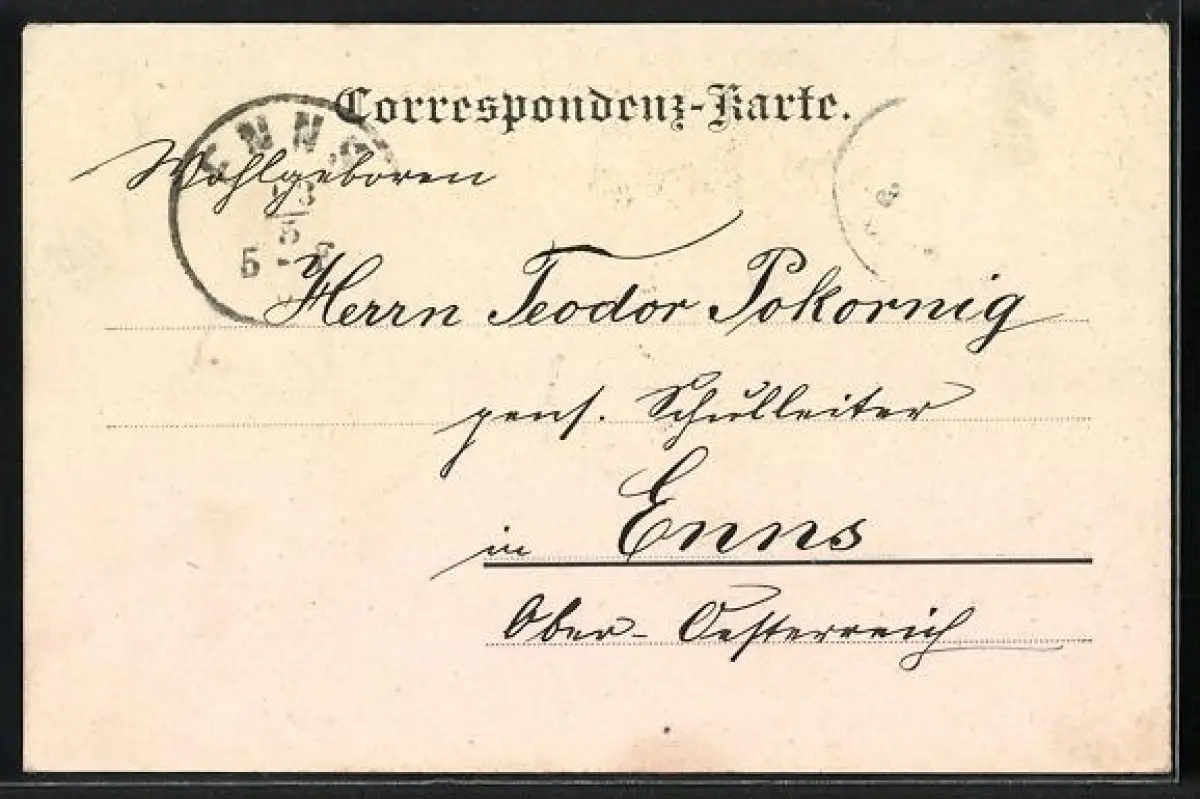 Correspondenz-Karte.
ENNS
Wohlgeboren
Herrn Teodor Pokornig
pens. Schulleiter
in Enns
Ober-Oesterreich